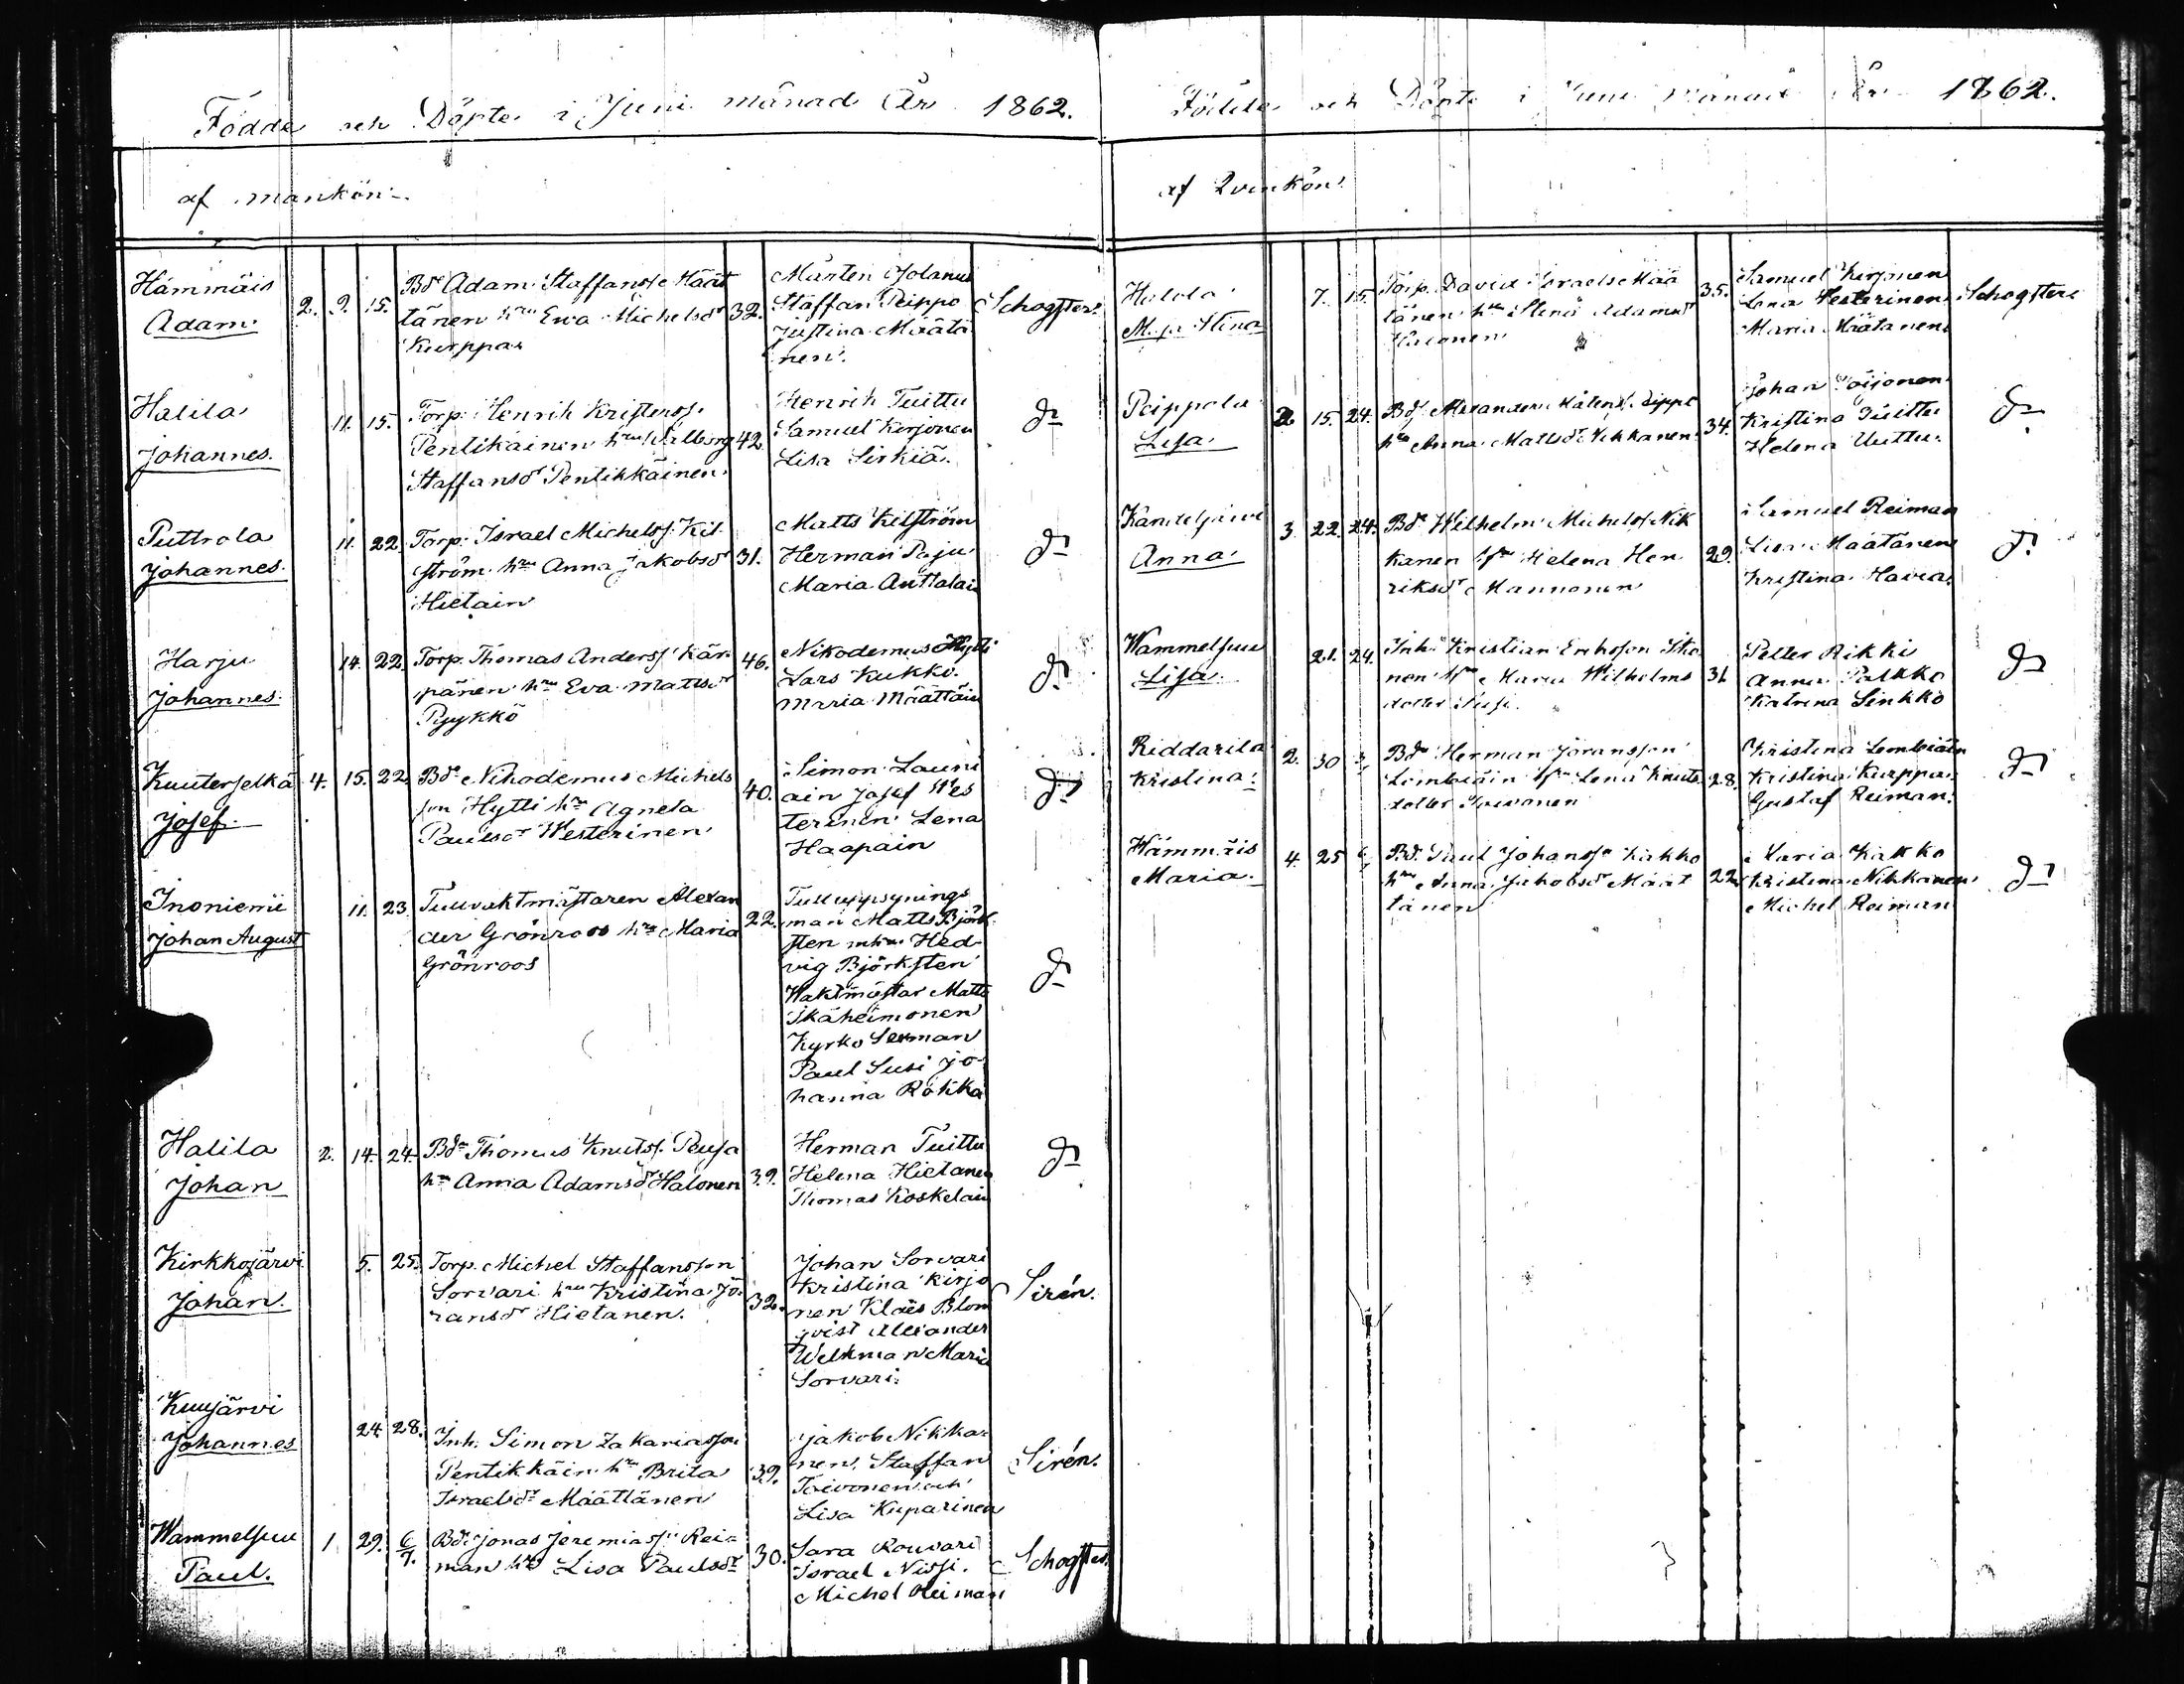 Födde och Döpte i Juni månad År 1862.
af mankön.
Hämmäis
Adam
2. 9. 15.
Bd Adam Staffanss Määt
tänen hru Ewa Michelsdr
Kurppa
32.
Mårten Jolanus
Staffan Peippo
Justina Määtä
nen.
Schogster.
Halila
Johannes.
11. 15.
Torp. Henrik Kristerss.
Pentikäinen hru Walborg
Staffansdr Pentikkäinen
42.
Henrik Tuittu
Samuel Kirjonen
Lisa Sirkiä.
do
Puttrola
Johannes.
11. 22.
Torp. Israel Michelss. Kil
ström hru Anna Jakobsdr
Hietain
31.
Matts Kilström
Herman Paju
Maria Anttalain
do
Harju
Johannes.
14. 22.
Torp. Thomas Anderss. Kär
pänen hru Eva Mattsdr
Pyykkö
46.
Nikodemus Hytti
Lars Kukko.
Maria Määttäin
do
Kuuterselkä
Josef.
4. 15. 22.
Bd Nikodemus Michels
son Hytti hru Agneta
Paulsdr Westerinen
40.
Simon Launi
ain Josef Wes
terinen Lena
Haapain
do
Inoniemi
Johan August
11. 23.
Tullvaktmästaren Alexan
der Grönroos hru Maria
Grönroos
22.
Tulluppsynings
man Matts Björk
sten m hru Hed
vig Björksten
Waktmästar Matts
Ikäheimonen
Kyrko Sexman
Paul Susi Jo
hanna Rokka
do
Halila
Johan
2. 14. 24.
Bd Thomas Knutss. Peusa
hru Anna Adamsdr Halonen
39.
Herman Tuittu
Helena Hietanen
Thomas Koskelain
do
Kirkkojärvi
Johan.
5. 25.
Torp. Michel Staffansson
Sorvari hru Kristina Jö
ransdr Hietanen.
32.
Johan Sorvari
Kristina Kirjo
nen Klaës Blom
qvist Alexander
Welkman Maria
Sorvari.
Sirén.
Kuujärvi
Johannes
24 28.
Inh. Simon Zakariasson
Pentikkäin hru Brita
Israelsdr Määttänen
39.
Jakob Nikka
nen, Staffan
Toivonen och
Lisa Kuparinen
Sirén.
Wammelsuu
Paul.
1 29. 6/7.
Bd Jonas Jeremiass Rei
man hru Lisa Paulsdr
30.
Sara Rouvari
Israel Nissi.
Michel Reiman
Schogster.
Födde och Döpte i Juni månad År 1862.
af Qvinkön.
Halola
Maja Stina
7. 15.
Torp. David Israelss Mää
tänen hru Stina Adamsdr
Halonen
35.
Samuel Kirjonen
Lena Westerinen
Maria Määtänen
Schogster
Peippola
Lisa
2 15. 24.
Bd Alexander Peippo
hru Anna Mattsdr Nikkanen
34.
Johan
Kristina Tuittu
Helena Uuttu
do
Kaneljärvi
Anna
3 22. 24.
Bd Wilhelm Michelss Nik
kanen hru Helena Hen
riksdr Mannonen
29.
Samuel Reiman
Lisa Määtänen
Kristina Havia
do
Wammelsuu
Lisa.
21. 24.
Inh Kristian Erikson
nen hru Maria Wilhelms
dotter Susi.
31
Petter Rikki
Anna Pakko
Katrina Sinkko
do
Riddarila
Kristina
2. 30
Bd Herman Jöransson
Lembiäin hru Lena Knuts
dotter Toivonen
28.
Kristina Lembiäin
Kristina Kurppa
Gustaf Reiman.
do
Hämmäis
Maria.
4. 25
Bd Paul Johanss. Kakko
hru Anna Jakobsdr Määt
tänen
22
Maria Kakko
Kristina Nikkanen
Michel Reiman
do